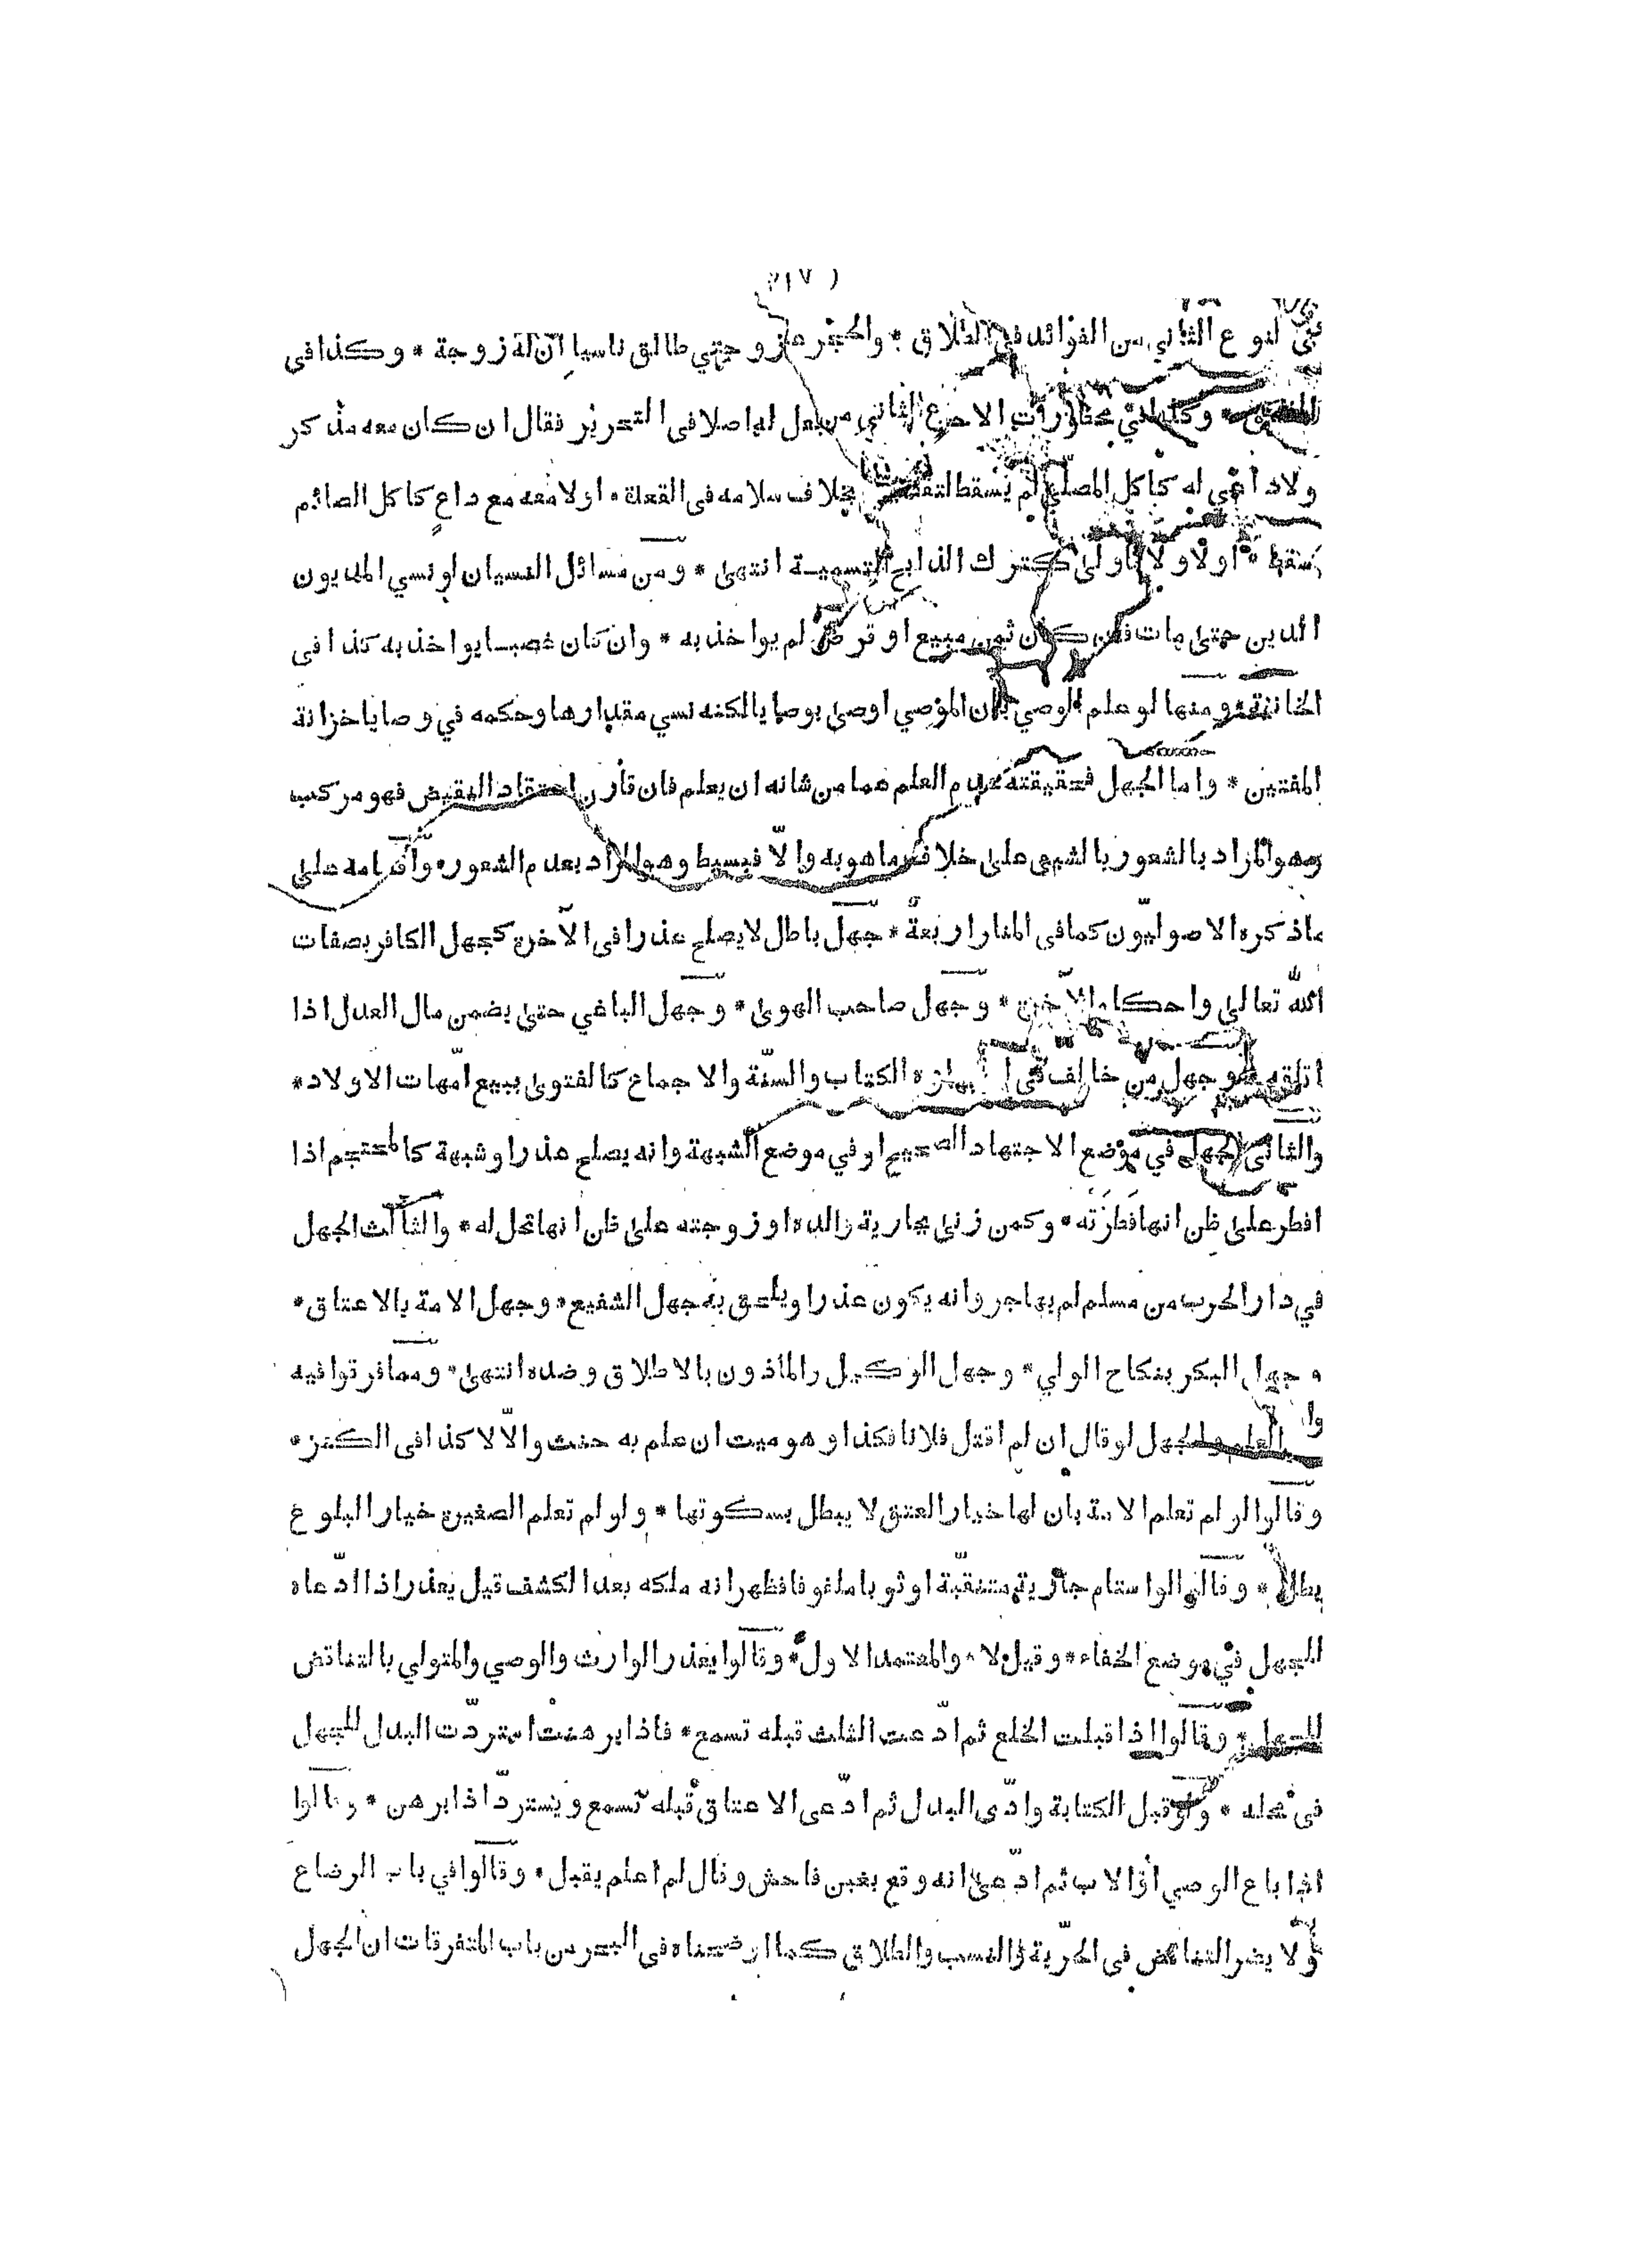 ( ٢١٧ )
في النوع الثاني من الفوائد في الطلاق * زوجتي طالق ناسيا ان له زوجة * وكذا في
الاصلا في التحرير فقال ان كان معه مذكر
ولا داعي له كاكل المصلي لم يسقط لتقصيره بخلاف سلامه في القعدة * او لا معه مع داعٍ كاكل الصائم
سقط * او لا ولا فاولى كترك الذابح التسمية انتهى * ومن مسائل النسيان لو نسي المديون
الدين حتى مات فان كان ثمن مبيع او قرض لم يواخذ به * وان كان غصبا يواخذ به كذا في
الخانية * ومنها لو علم الوصي بان الموصي اوصى بوصايا لكنه نسي مقدارها وحكمه في وصايا خزانة
المفتين * واما الجهل فحقيقته عدم العلم عما من شانه ان يعلم فان قارن اعتقاد النقيض فهو مركب
وهو المراد بالشعور بالشيء على خلاف ما هو به والّا فبسيط وهو المراد بعدم الشعور * واقسامه على
ما ذكره الاصوليّون كما في المنار اربعة * جهل باطل لا يصلح عذرا في الآخرة كجهل الكافر بصفات
اللّه تعالى واحكام الآخرة * وجهل صاحب الهوى * وجهل الباغي حتى يضمن مال العدل اذا
اتلفه * وجهل من خالف في اجتهاده الكتاب والسنّة والاجماع كالفتوى ببيع امّهات الاولاد *
والثاني الجهل في موضع الاجتهاد الصحيح او في موضع الشبهة وانه يصلح عذرا وشبهة كالمحتجم اذا
افطر على ظن انها فطرته * وكمن زنى بجارية والده او زوجته على ظن انها تحل له * والثالث الجهل
في دار الحرب من مسلم لم يهاجر وانه يكون عذرا ويلحق به جهل الشفيع * وجهل الامة بالاعتاق *
وجهل البكر بنكاح الولي * وجهل الوكيل والماذون بالاطلاق وضده انتهى * ومما فرقوا فيه
بين العلم والجهل لو قال ان لم اقتل فلانا فكذا وهو ميت ان علم به حنث والّا لا كذا في الكنز *
وقالوا لو لم تعلم الامة بان لها خيار العتق لا يبطل بسكوتها * ولو لم تعلم الصغيرة خيار البلوغ
بطل * وقالوا لو استام جارية متنقّبة او ثوبا ملفوفا فظهر انه ملكه بعد الكشف قيل يعذر اذا ادّعاه
للجهل في موضع الخفاء * وقيل لا * والمعتمد الاول * وقالوا يعذر الوارث والوصي والمتولي بالتناقض
للجهل * وقالوا اذا قبلت الخلع ثم ادّعت الثلث قبله تسمع * فاذا برهنت استردّت البدل للجهل
في محله * ولو قبل الكتابة وادّى البدل ثم ادّعى الاعتاق قبله تسمع ويستردّ اذا برهن * وقالوا
اذا باع الوصي او الاب ثم ادّعى انه وقع بغبن فاحش وقال لم اعلم يقبل * وقالوا في باب الرضاع
ولا يضر التناقض في الحرّية والنسب والطلاق كما اوضحناه في البحر من باب المتفرقات ان الجهل